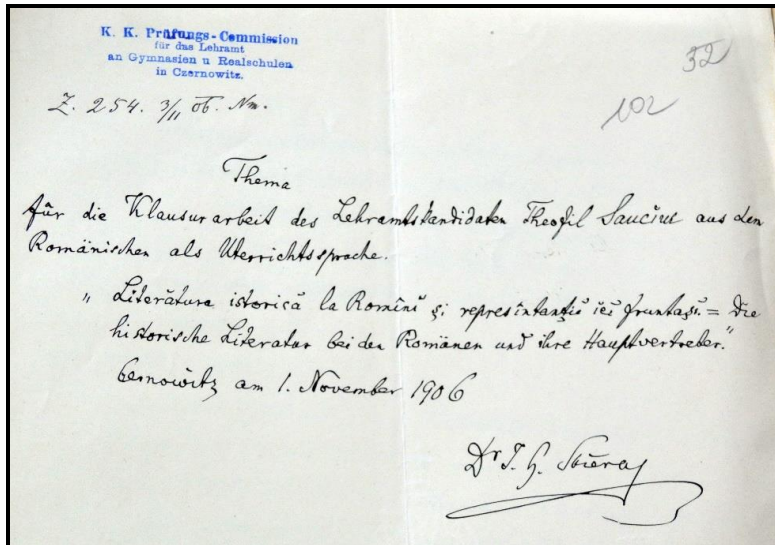 K. K. Prüfungs-Commission
für das Lehramt
an Gymnasien u Realschulen
in Czernowitz.
32
Z. 254. 3/11 06. Nm.
102
Thema
für die Klausurarbeit des Lehramtskandidaten Theofil Sauciuc aus dem
Romänischen als Uterrichtssprache.
" Literatura istorică la Romînĭ și represintanțiĭ ieĭ fruntașĭ. = Die
historische Literatur bei den Romänen und ihre Hauptvertreter."
Cernowitz am 1. November 1906
Dr